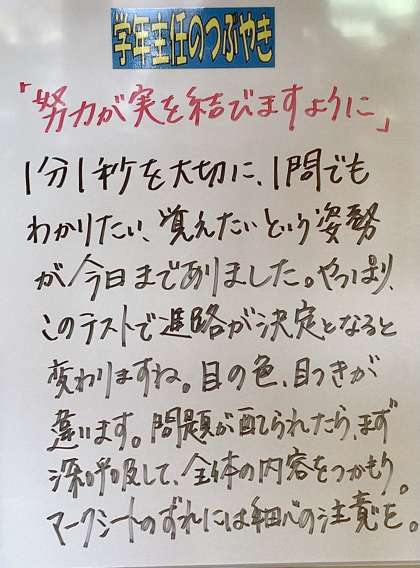 学年主任のつぶやき
「努力が実を結びますように」
1分1秒を大切に、1問でも
わかりたい、覚えたいという姿勢
が今日までありました。やっぱり、
このテストで進路が決定となると
変わりますね。目の色、目つきが
違います。問題が配られたら、まず
深呼吸して、全体の内容をつかもう。
マークシートのずれには細心の注意を。